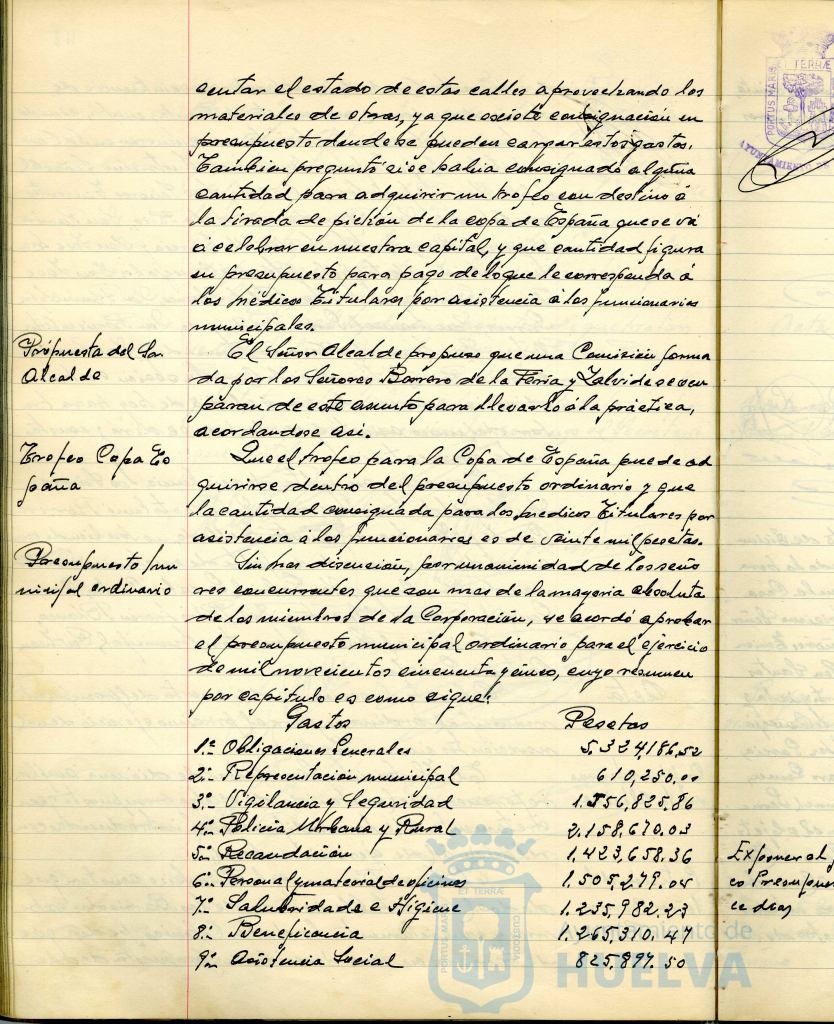 centar el estado de estas calles aprovechando los
materiales de otras, ya que existe consignación en
presupuesto donde se pueden cargar estos gastos.
Tambien preguntó si se habia consignado alguna
cantidad para adquirir un trofeo con destino á
la tirada de pichón de la copa de España que se vá
á celebrar en nuestra capital, y que cantidad figura
en presupuesto para pago de lo que le corresponda á
los Médicos Titulares por asistencia á los funcionarios
municipales.
Propuesta del Sor
Alcalde
El Señor Alcalde propuso que una Comisión forma
da por los Señores Borrero de la Feria y Zalvide se ocu
paran de este asunto para llevarlo á la práctica,
acordandose asi.
Trofeo Copa Es
paña
Que el trofeo para la Copa de España puede ad
quirirse dentro del presupuesto ordinario y que
la cantidad consignada para los Medicos Titulares por
asistencia á los funcionarios es de veinte mil pesetas.
Presupuesto mu
nicipal ordinario
Sin mas discusión, por unanimidad de los seño
res concurrentes que son mas de la mayoria absoluta
de los miembros de la Corporación, se acordó aprobar
el presupuesto municipal ordinario para el ejercicio
de mil novecientos cincuenta y cinco, cuyo resumen
por capitulo es como sigue:
Gastos Pesetas
1.º Obligaciones Generales 5.324,186,52
2.º Representación municipal 610,250.00
3.º Vigilancia y Seguridad 1.556,825.86
4.º Policia Urbana y Rural 2.158,670.03
5.º Recaudación 1.423,658.36
6.º Personal y material de oficinas 1.505,279.04
7.º Salubridad e Higiene 1.235,982.23
8.º Beneficencia 1.265,310.47
9.º Asistencia Social 825,897.50
Exponer al
co Presupu
ce dias
PORTUS MARIS ET TERRÆ
AYUNTAMIENTO
PORTUS MARIS ET TERRÆ CUSTODIA
Ayuntamiento de
HUELVA